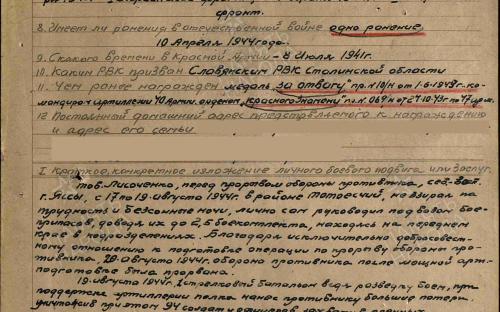 фронт.
8. Имеет ли ранения в отечественной войне одно ранение
10 Апреля 1944 года.
9. Сколько времени в Красной Армии - 8 Июля 1941г.
10. Каким РВК призван Славянским РВК Сталинской области
11. Чем ранее награжден медаль за отвагу пр. №10/н от 1-6-1943г. ко-
мандира артиллерии 40 Армии, орденом, Красного знамени, пр. № 069/н от 27-10-43г. по 47
12. Постоянный домашний адрес представляемого к награждению
и адрес его семьи
I. Краткое, конкретное изложение личного боевого подвига или заслуг.
тов. Лисоченко, перед прорывом обороны противника, сев-зап.
г. Яссы, с 17 по 19 августа 1944г. в районе невзирая на
трудность и бессонные ночи, лично сам руководил подвозом бое-
припасов, доводя их до боекомплекта, находясь на переднем
крае в подразделениях. Благодаря исключительно добросовест-
ному отношению к подготовке операции по прорыву обороны про-
тивника. 20. августа 1944г. оборона противника после мощной арт-
подготовке была прорвана.
19. августа 1944г. 1 стрелковый батальон ведя разведку боем, при
поддержке артиллерии полка нанес противнику большие потери.
уничтожив при этом 94 солдат и офицеров